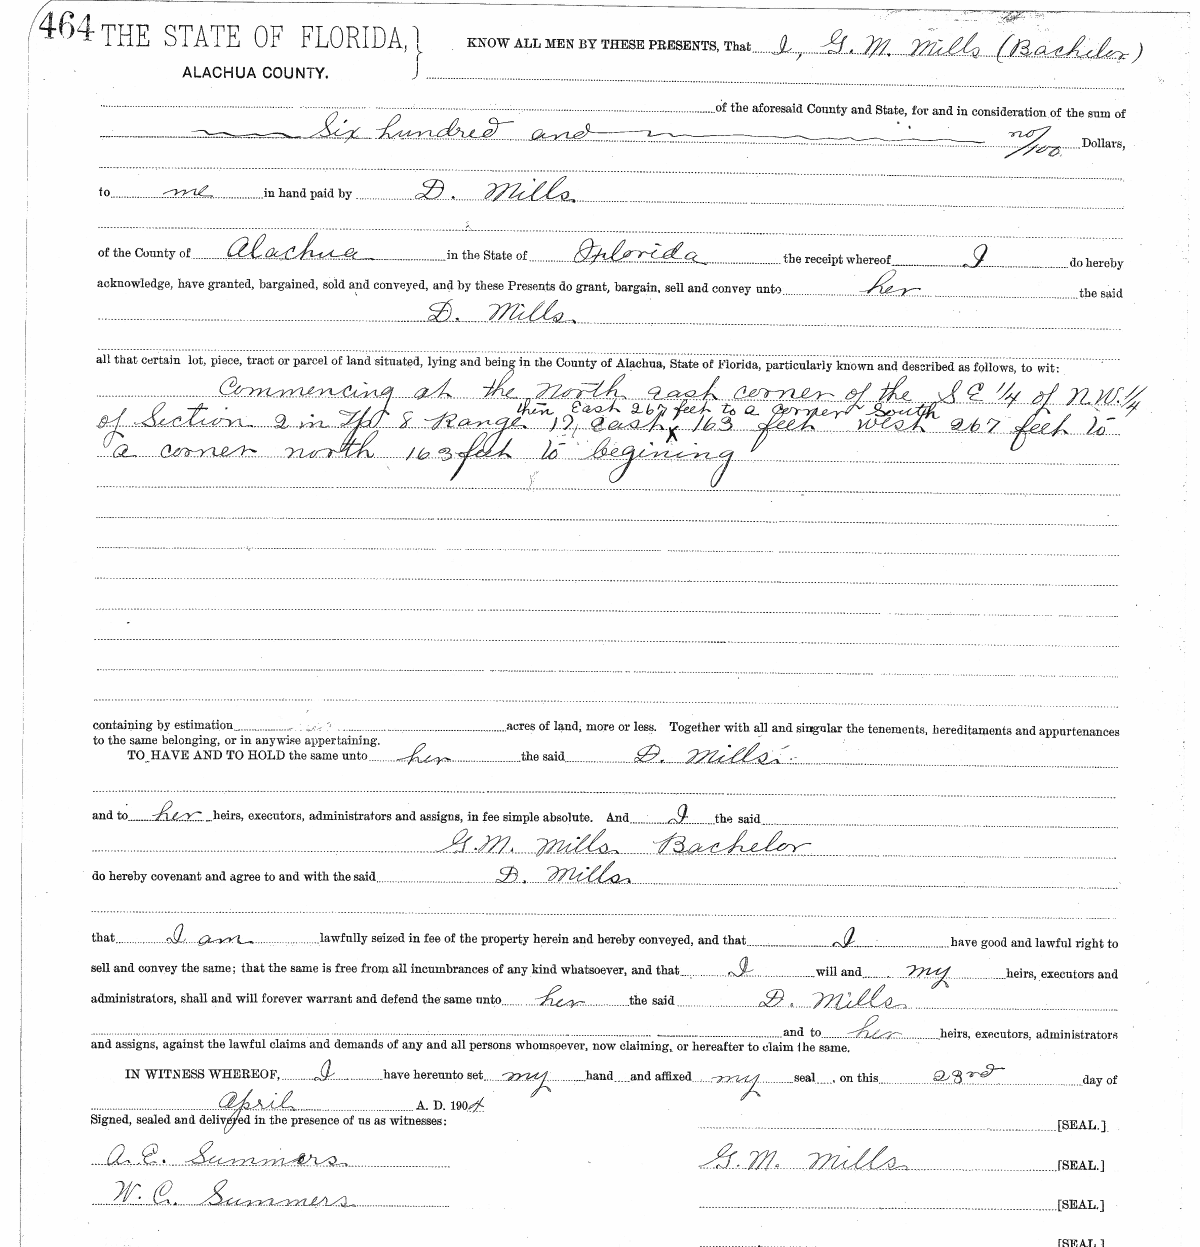 464 THE STATE OF FLORIDA,
ALACHUA COUNTY.
KNOW ALL MEN BY THESE PRESENTS, That I, G. M. Mills (Bachelor)
of the aforesaid County and State, for and in consideration of the sum of
Six hundred and no/100 Dollars,
to me in hand paid by D. Mills
of the County of Alachua in the State of Florida the receipt whereof I do hereby
acknowledge, have granted, bargained, sold and conveyed, and by these Presents do grant, bargain, sell and convey unto her the said
D. Mills
all that certain lot, piece, tract or parcel of land situated, lying and being in the County of Alachua, State of Florida, particularly known and described as follows, to wit:
Commencing at the North east corner of the S E 1/4 of N.W. 1/4
then East 267 feet to a corner South
of Section 2 in Tp 8 Range 17, East x 163 feet west 267 feet to
a corner north 163 feet to begining
containing by estimation acres of land, more or less. Together with all and singular the tenements, hereditaments and appurtenances
to the same belonging, or in anywise appertaining.
TO HAVE AND TO HOLD the same unto her the said D. Mills
and to her heirs, executors, administrators and assigns, in fee simple absolute. And I the said
G. M. Mills Bachelor
do hereby covenant and agree to and with the said D. Mills
that I am lawfully seized in fee of the property herein and hereby conveyed, and that I have good and lawful right to
sell and convey the same; that the same is free from all incumbrances of any kind whatsoever, and that I will and my heirs, executors and
administrators, shall and will forever warrant and defend the same unto her the said D. Mills
and to her heirs, executors, administrators
and assigns, against the lawful claims and demands of any and all persons whomsoever, now claiming, or hereafter to claim the same.
IN WITNESS WHEREOF, I have hereunto set my hand and affixed my seal, on this 23rd day of
April A. D. 1904
Signed, sealed and delivered in the presence of us as witnesses:
[SEAL.]
A. E. Summers G. M. Mills [SEAL.]
W. C. Summers [SEAL.]
[SEAL.]